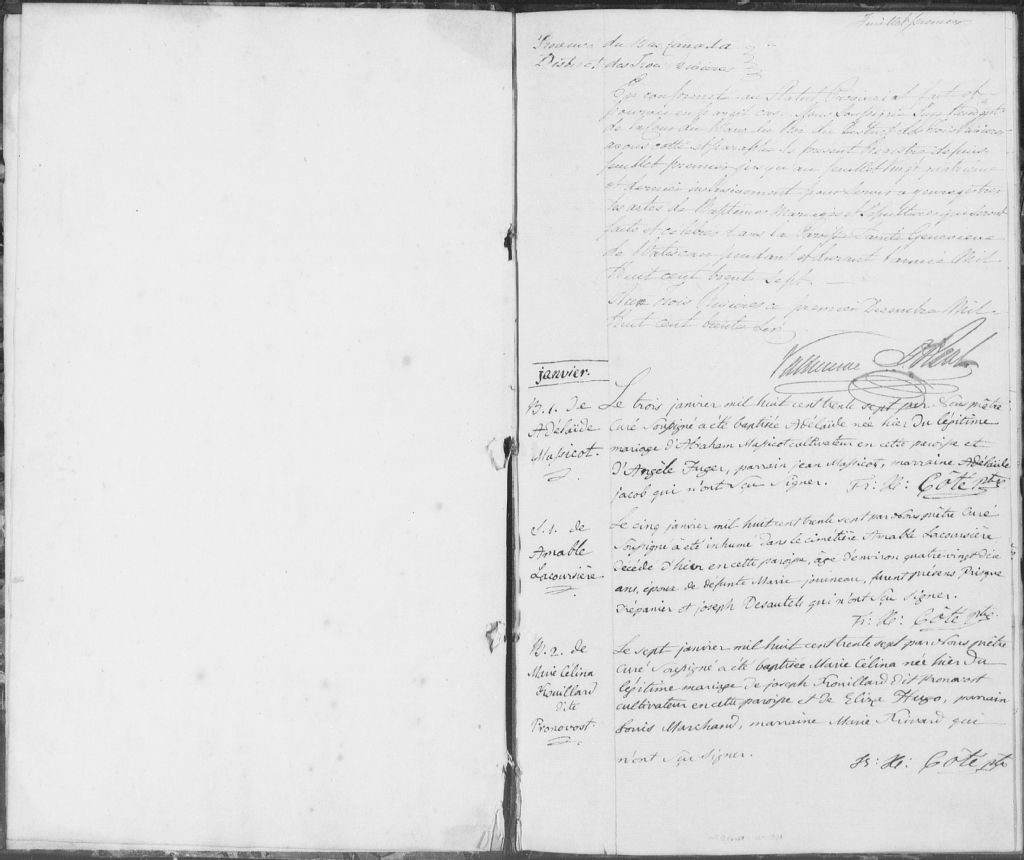 Feuillet premier
Province du Bas Canada
District des Trois Rivieres
En conformité au Statut Provincial fait et
pourvu en pareil cas. Nous Soussigné
de la Cour du Banc du Roi du District des Trois Rivieres
avons cotté et paraphé le present Registre depuis
feuillet premier jusqu'au feuillet vingt quatrieme
et dernier inclusivement pour servir a y enregistrer
les actes de Baptemes Mariages et Sepultures qui seront
faits et celebrés dans la Paroisse Sainte Genevieve
de Batiscan pendant et durant l'année Mil
Huit cent trente Sept. —
Aux Trois Rivieres ce premier Decembre Mil
Huit cent trente Six
janvier.
B. 1. De
Adélaïde
Massicot.
Le trois janvier mil huit cent trente sept par Nous prêtre
Curé Soussigné a été baptisée Adélaïde née hier Du légitime
mariage d'Abraham Massicot cultivateur en cette paroisse et
D'Angèle Fuger, parrain jean Massicot, marraine Adélaïde
jacob qui n'ont Sçu Signer. Fr: X: Côté ptre
S. 1. de
Amable
Lacoursière.
Le cinq janvier mil huit cent trente sept par Nous prêtre Curé
Soussigné a été inhumé dans le cimetière Amable Lacoursière,
Décédé d'hier en cette paroisse, âgé d'environ quatre-vingt dix
ans, époux de défunte Marie jouineau, furent présens Prisque
Trépanier et joseph Desautels qui n'ont Sçu Signer.
Fr: X: Côté ptre.
B. 2. de
Marie Célina
Trouillard
dite
Pronovost.
Le sept janvier mil huit cent trente sept par Nous prêtre
Curé Soussigné a été baptisée Marie Célina née hier Du
légitime mariage de joseph Trouillard dit Pronovost
cultivateur en cette paroisse et de Eliza Hugo, parrain
Louis Marchand, marraine Marie Rivard qui
n'ont Sçu Signer.
Fr: X: Côté ptre